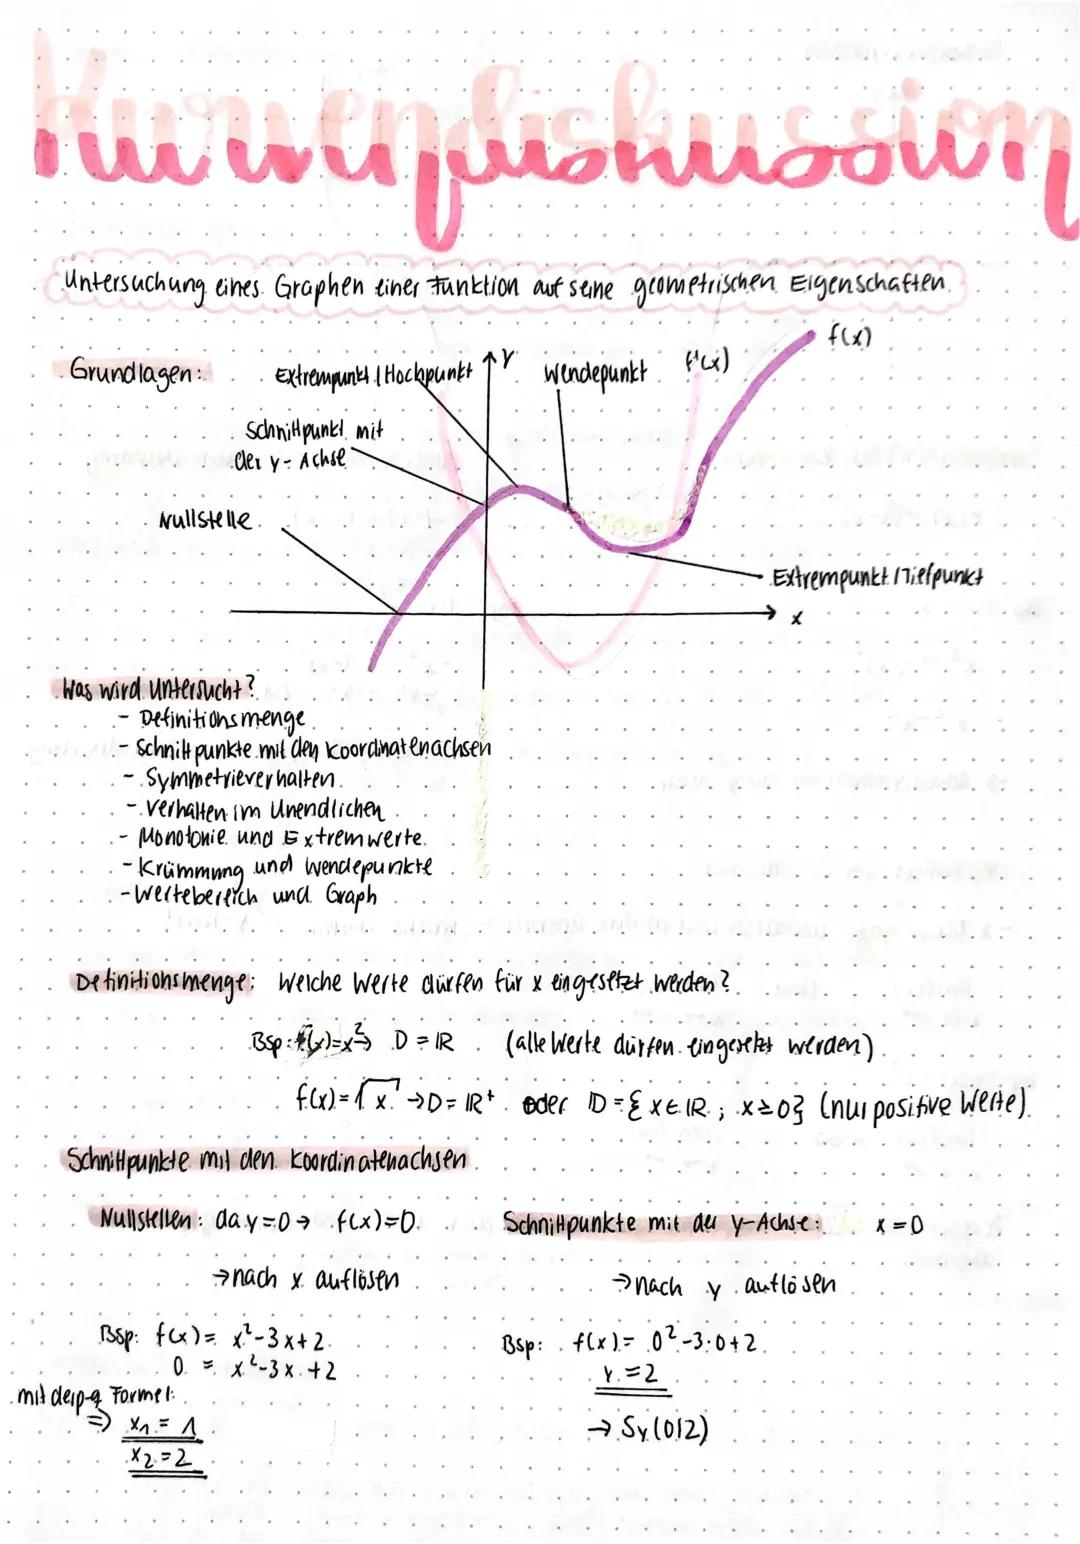 Kurvendiskussion
Untersuchung eines Graphen einer Funktion auf seine geometrischen Eigenschaften.
Grundlagen:
Extrempunkt / Hochpunkt
y
Wendepunkt
f'(x)
f(x)
Schnittpunkt mit
der y-Achse
Nullstelle
Extrempunkt / Tiefpunkt
x
Was wird untersucht?
- Definitionsmenge
- Schnittpunkte mit den Koordinatenachsen
- Symmetrieverhalten
- Verhalten im Unendlichen
- Monotonie und Extremwerte
- Krümmung und Wendepunkte
- Wertebereich und Graph
Definitionsmenge: Welche Werte dürfen für x eingesetzt werden?
Bsp: f(x)=x² → D = ℝ (alle Werte dürfen eingesetzt werden)
f(x) = √x → D = ℝ⁺ oder D = { x ∈ ℝ ; x ≥ 0} (nur positive Werte)
Schnittpunkte mit den Koordinatenachsen
Nullstellen: da y=0 → f(x)=0
→ nach x auflösen
Bsp: f(x) = x²-3x+2
0 = x²-3x+2
mit der p-q Formel:
⇒ x₁ = 1
x₂ = 2
Schnittpunkte mit der y-Achse: x = 0
→ nach y auflösen
Bsp: f(x) = 0²-3·0+2
y = 2
→ Sy (0|2)